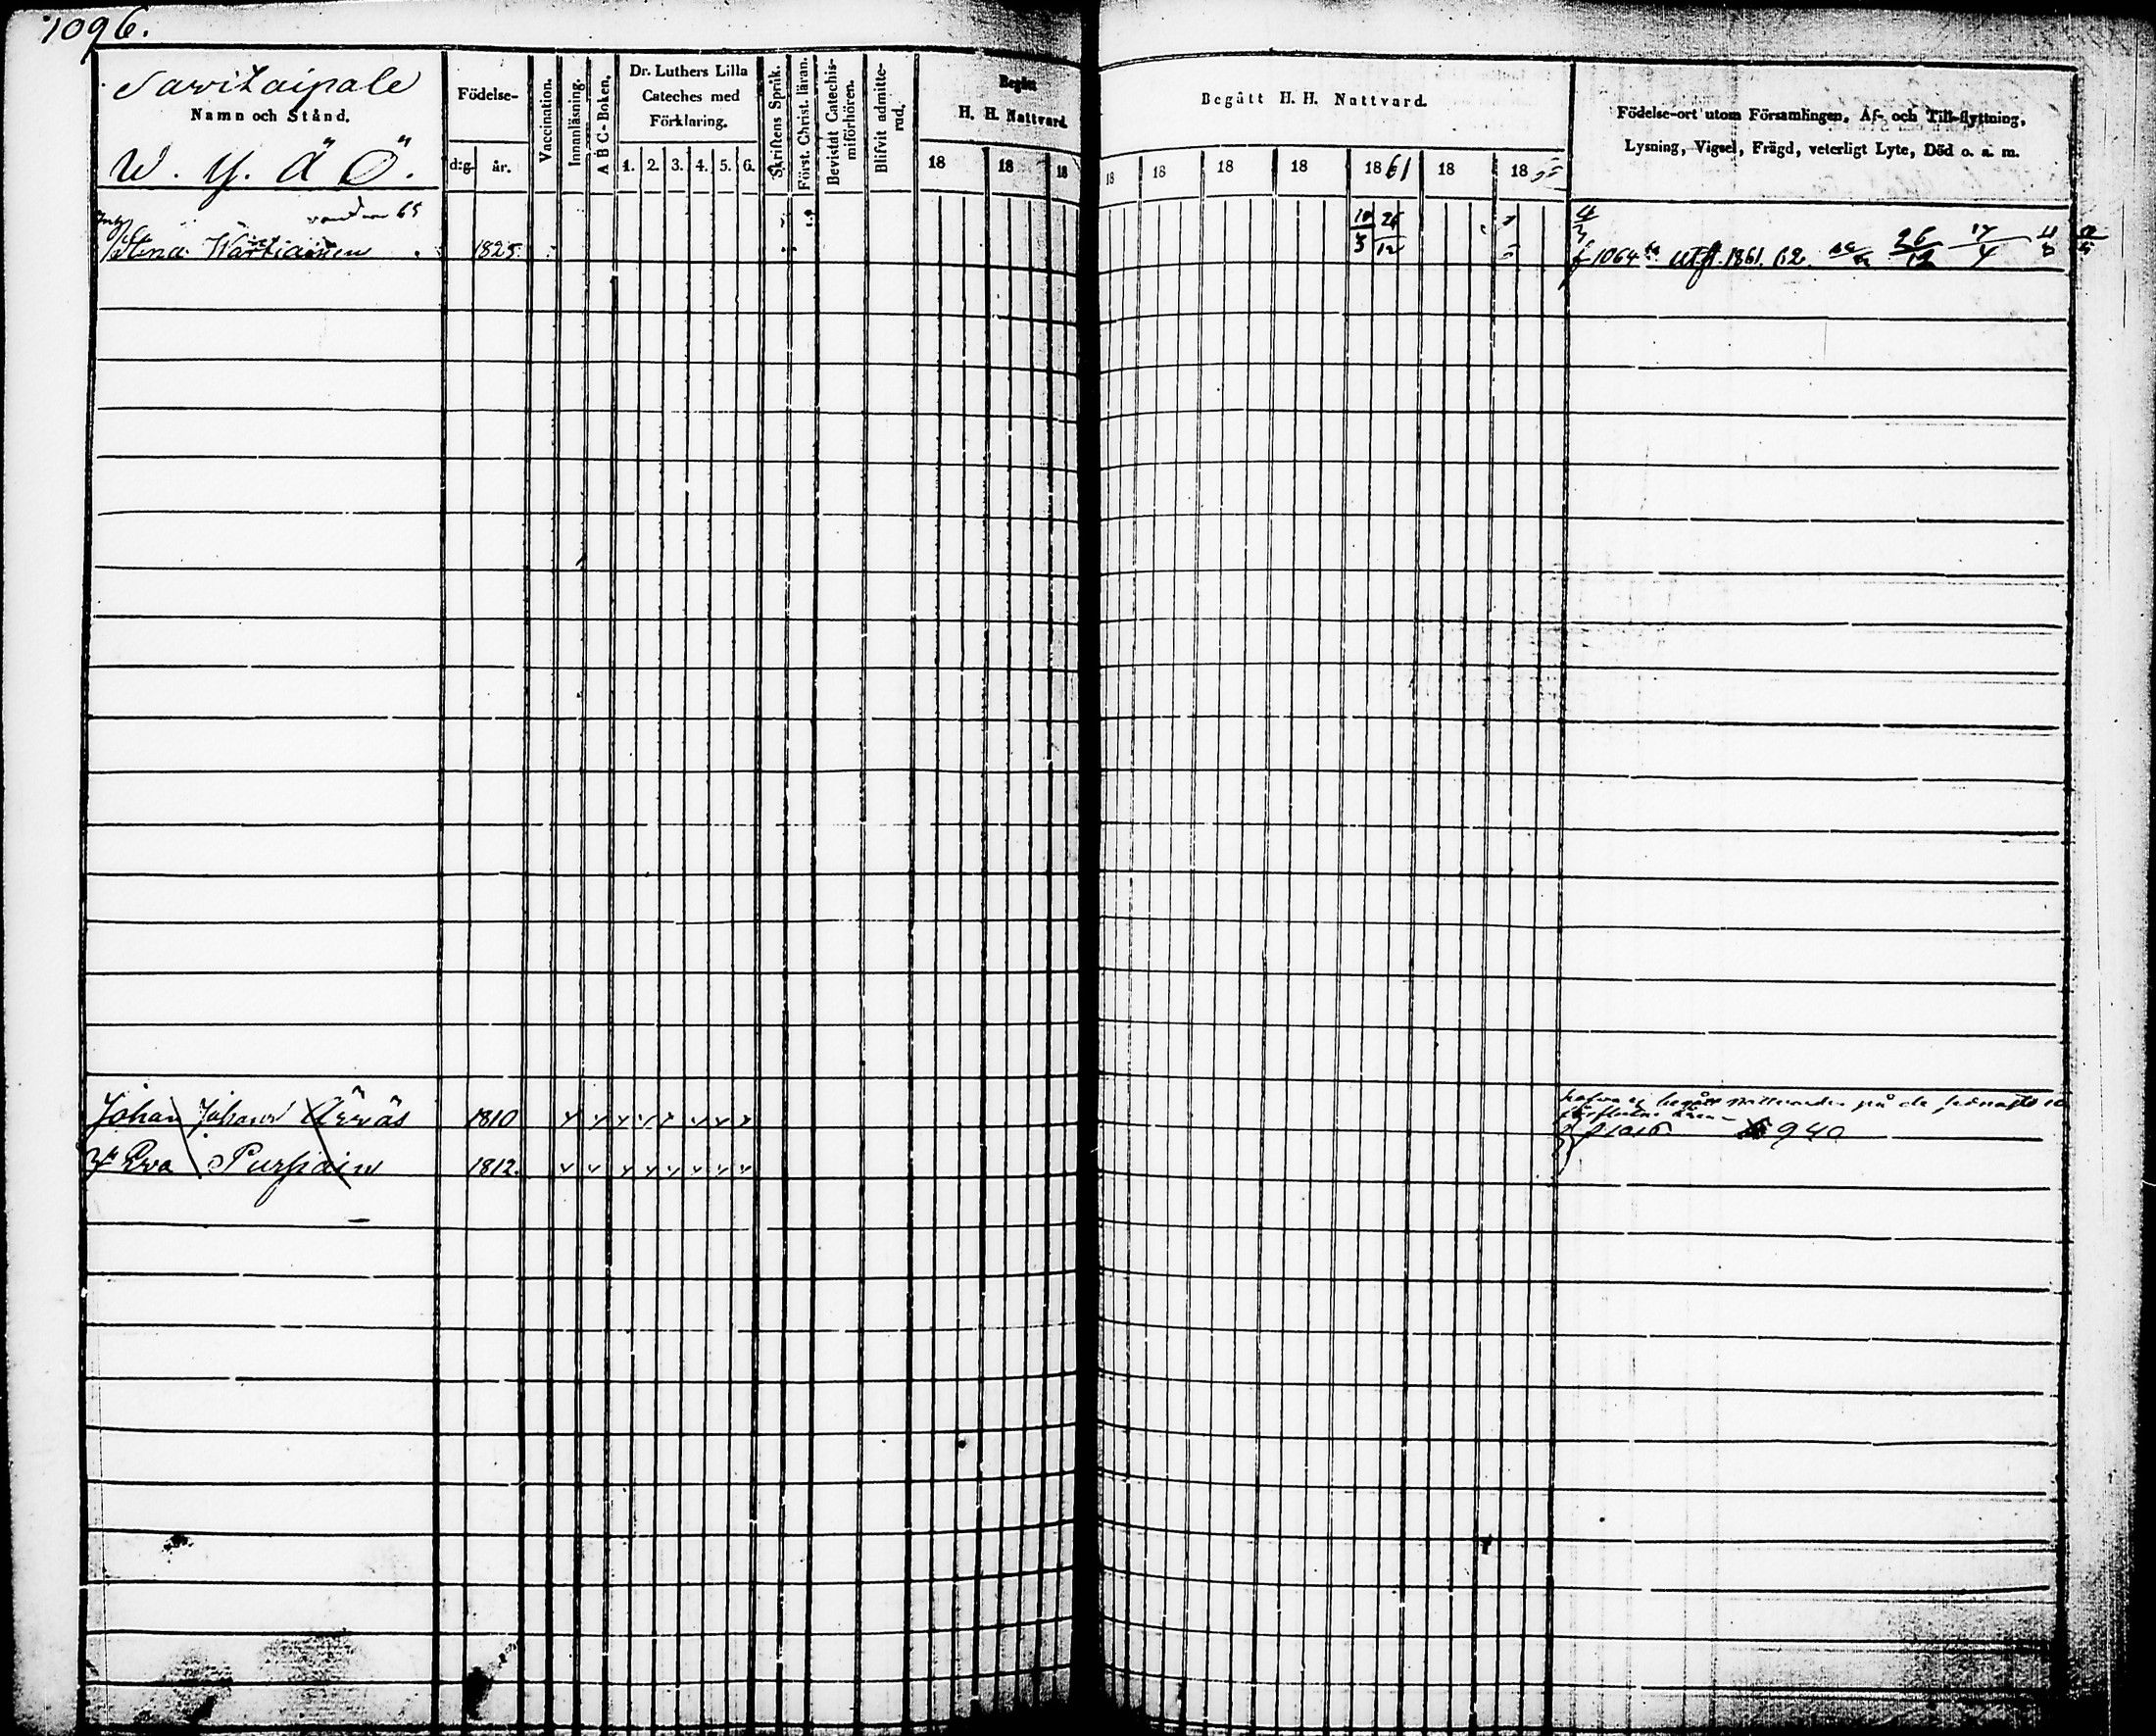 1096.
Savitaipale
Namn och Stånd.
W. Y. Ä Ö.
Födelse-
d:g. år.
Vaccination.
Innanläsning.
A B C-Boken.
Dr. Luthers Lilla
Cateches med
Förklaring.
1. 2. 3. 4. 5. 6.
Skriftens Språk.
Först. Christ. läran.
Bevistat Catechis-
miförhören.
Blifvit admitte-
rad.
Begått
H. H. Nattvard
18 18 18
Begått H. H. Nattvard.
18 18 18 18 1861 18 18
Födelse-ort utom Församlingen, Af- och Till-flyttning,
Lysning, Vigsel, Frägd, veterligt Lyte, Död o. s. m.
65
Stina Wartiainen 1825. 10/3 26/12 f 1064 utfl. 1861. 62. 26/12 17/4
Johan Johans Ärväs 1810 v v v v v v v v
hafva ej begått nattvarden på de
940
Eva Pursiain 1812. v v v v v v v v